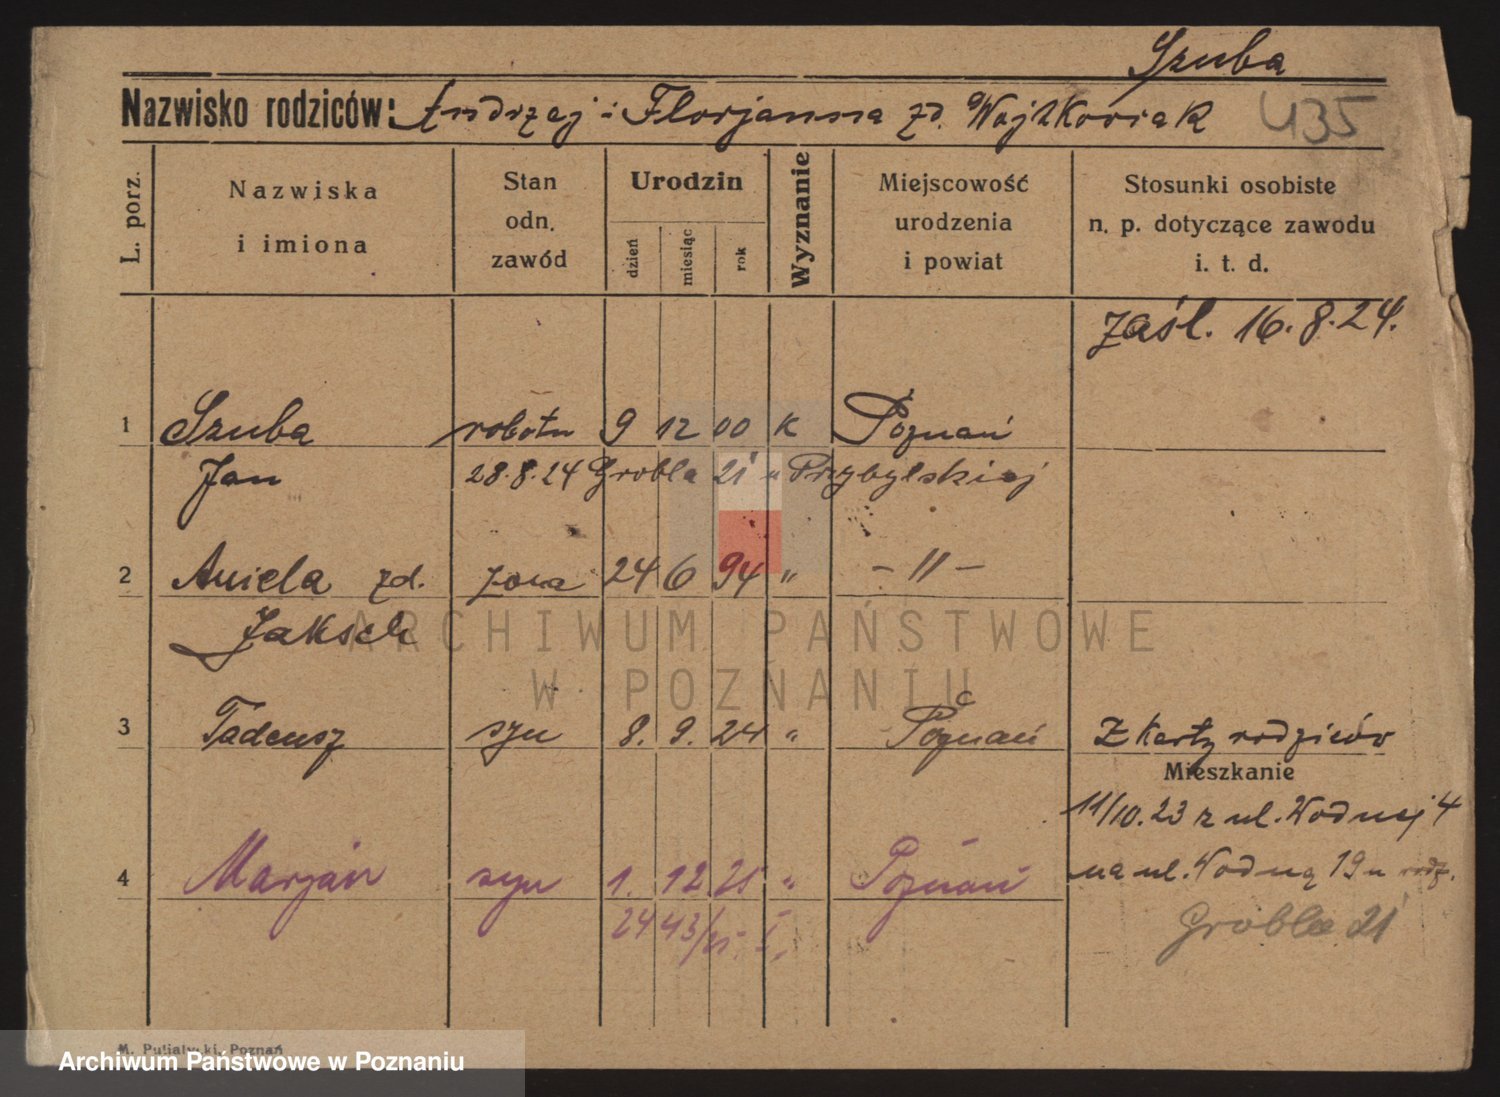 Szuba
Nazwisko rodziców: Andrzej i Florjanna zd. Wojtkowiak 435
L. porz.
Nazwiska
i imiona
Stan
odn.
zawód
Urodzin
dzień
miesiąc
rok
Wyznanie
Miejscowość
urodzenia
i powiat
Stosunki osobiste
n. p. dotyczące zawodu
i. t. d.
zaśl. 16.8.24.
1 Szuba robotn 9 12 00 K Poznań
Jan 28.8.24 Grobla 21 u Przybylskiej
2 Aniela zd. żona 24 6 94 " - " -
Jaksch
3 Tadeusz syn 8. 9. 24 " Poznań Z karty rodziców
Mieszkanie
11/10.23 z ul. Wodnej 4
4 Marjan syn 1. 12 25 " Poznań na ul. Wodną 19 u rodz.
2443/25. I.
Grobla 21
M. Putiatycki, Poznań
ARCHIWUM PAŃSTWOWE
W POZNANIU
Archiwum Państwowe w Poznaniu